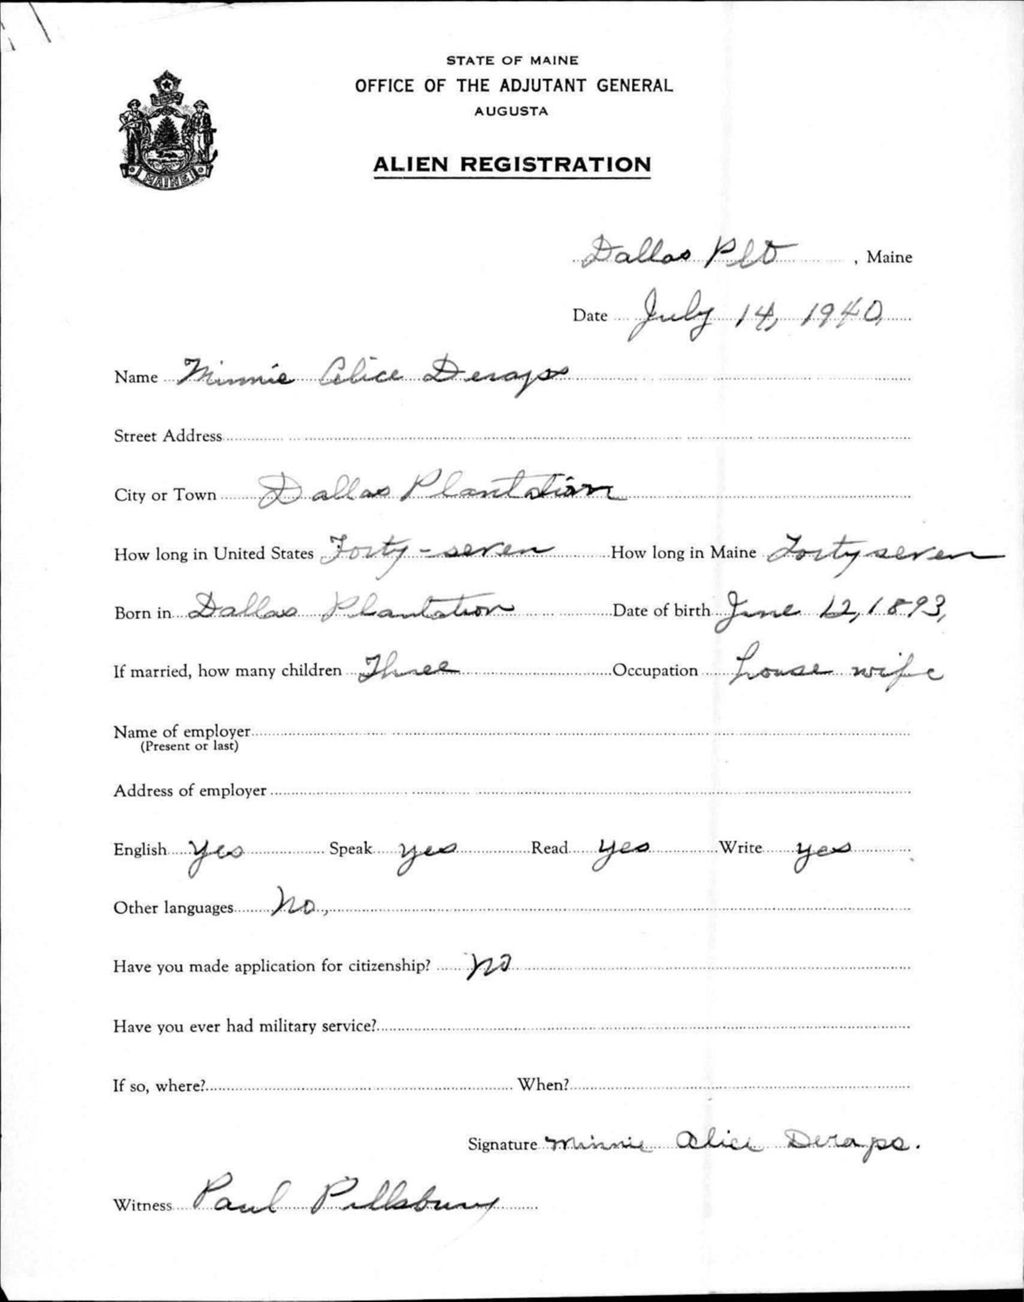 STATE OF MAINE
OFFICE OF THE ADJUTANT GENERAL
AUGUSTA
ALIEN REGISTRATION
MAINE
Dallas Plt, Maine
Date July 14, 1940,
Name Minnie Alice Deraps
Street Address
City or Town Dallas Plantation
How long in United States Forty-seven How long in Maine Forty seven
Born in Dallas Plantation Date of birth June 12, 1893,
If married, how many children Three Occupation house wife
Name of employer
(Present or last)
Address of employer
English Yes Speak yes Read yes Write yes
Other languages No,
Have you made application for citizenship? no
Have you ever had military service?
If so, where? When?
Signature Minnie Alice Deraps.
Witness Paul Pillsbury